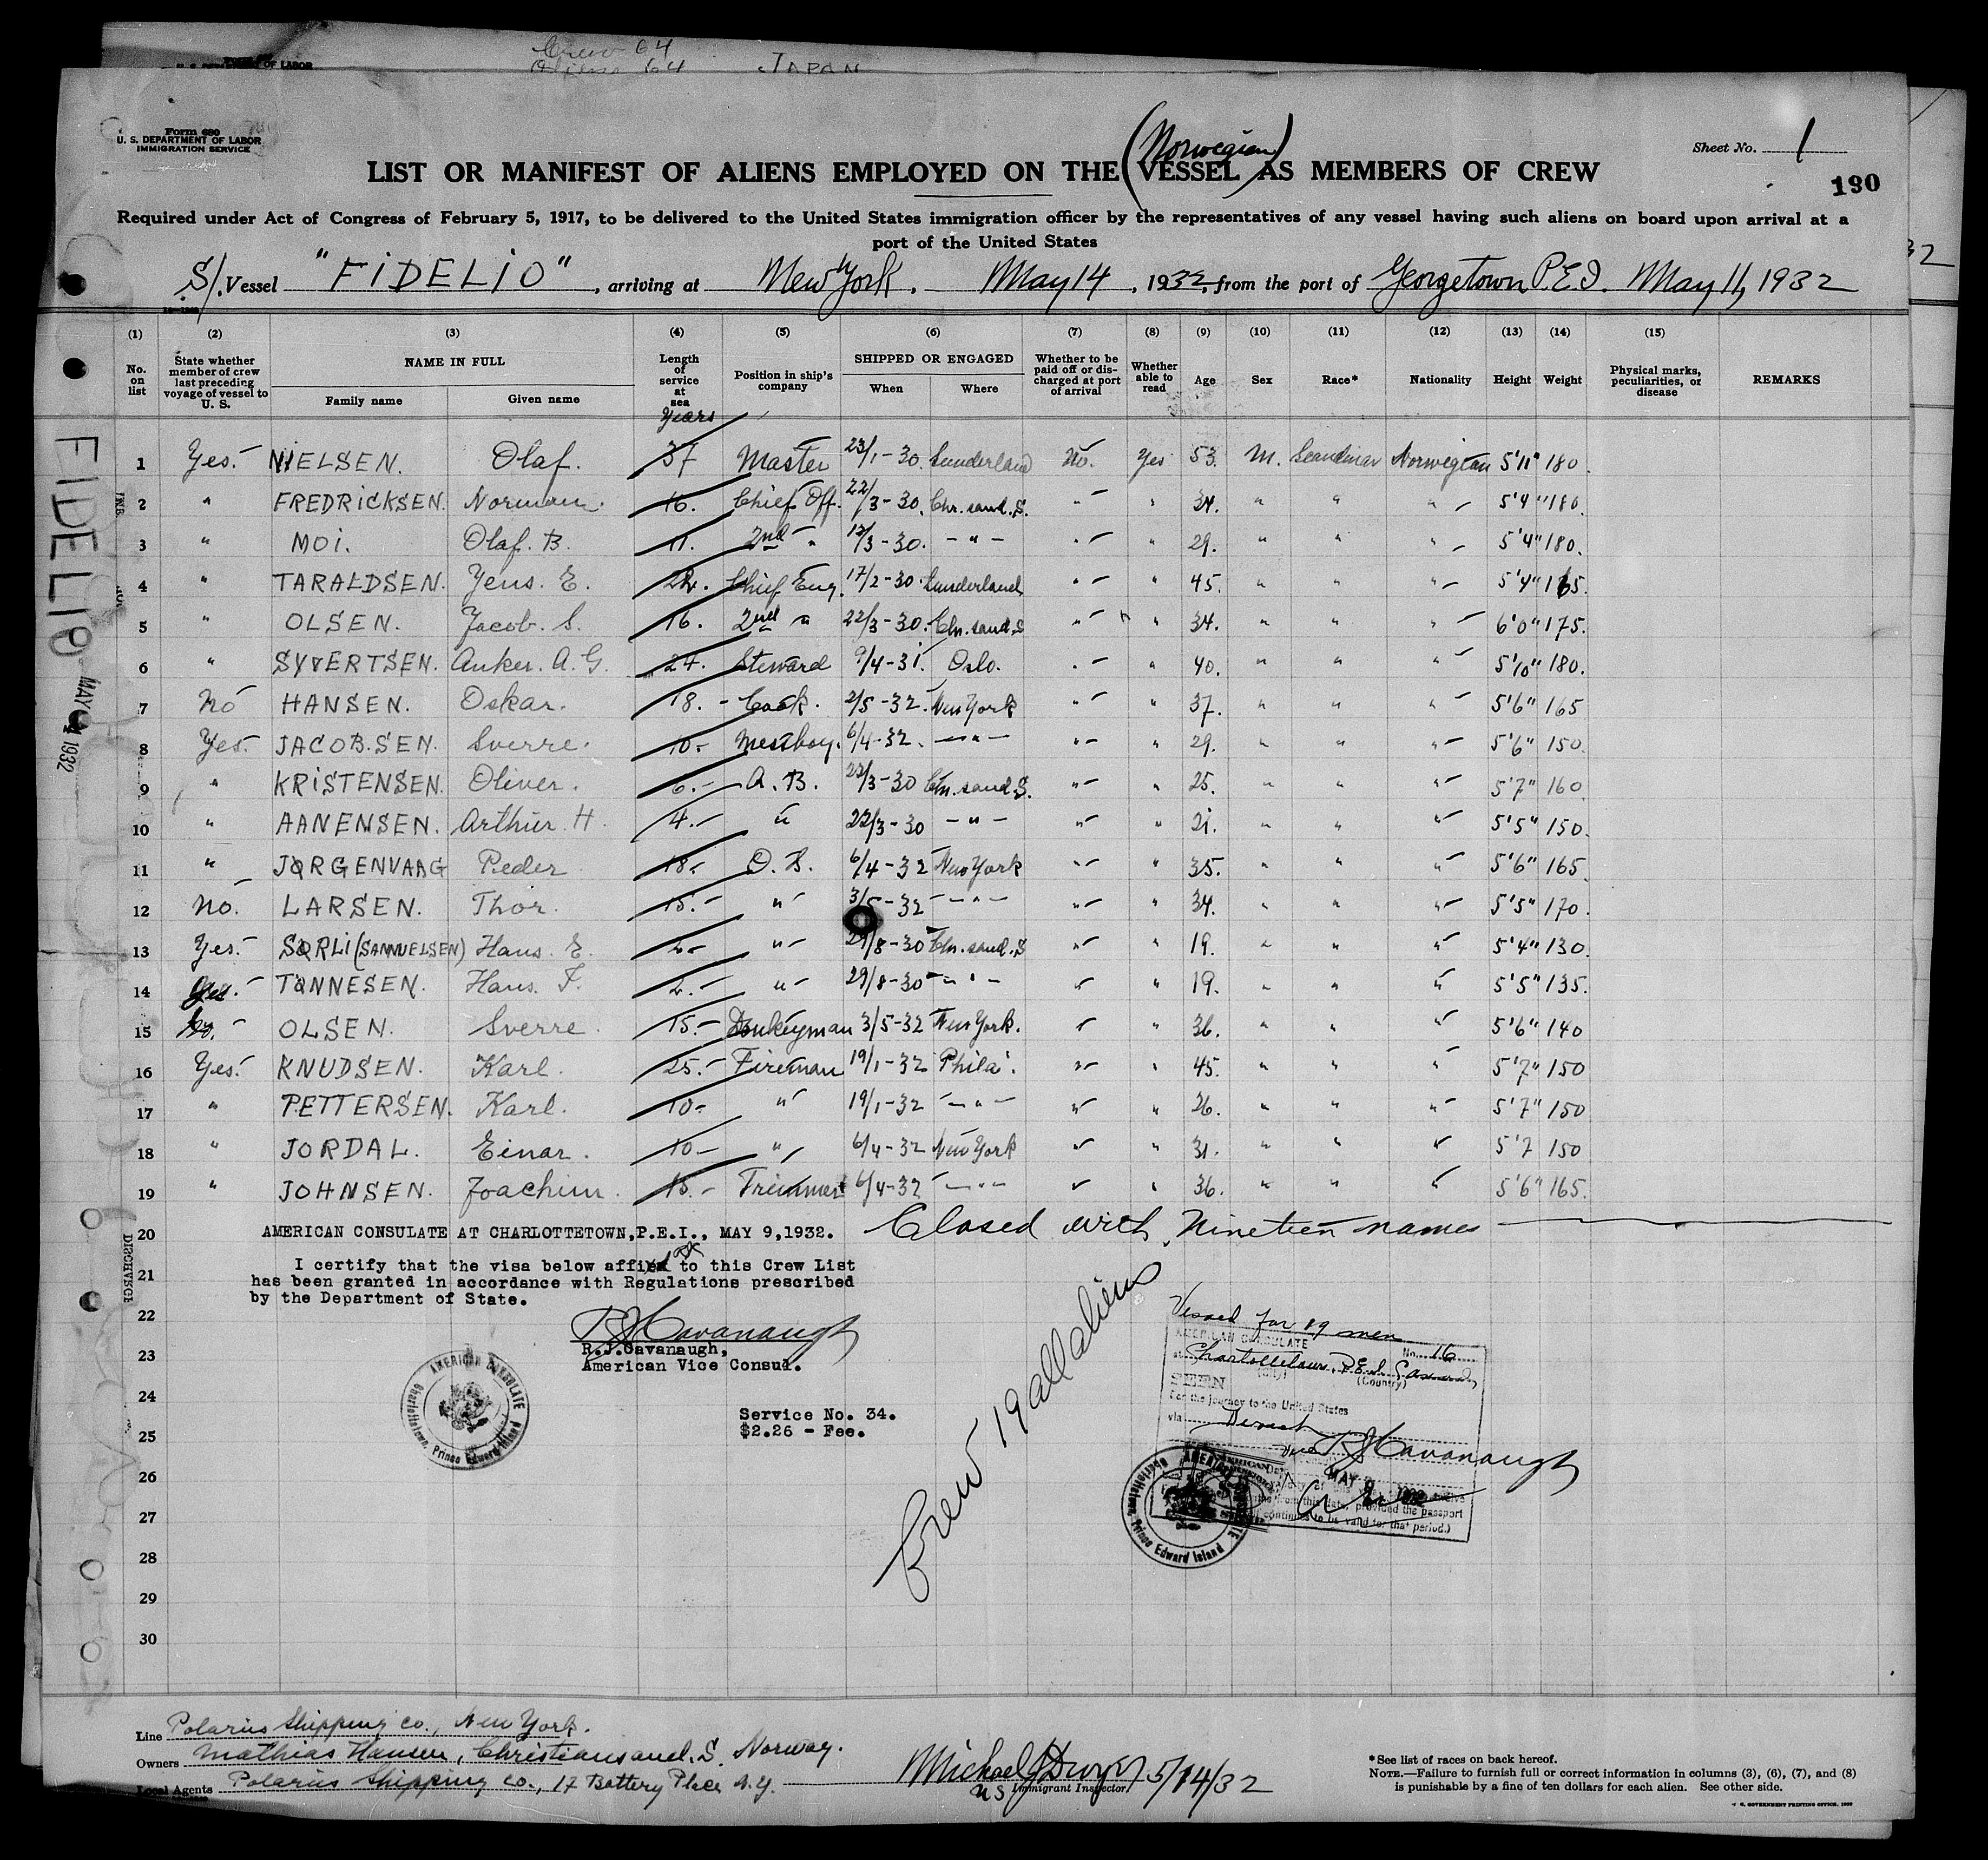 Crew 64
Aliens 64 JAPAN
Form 680
U. S. DEPARTMENT OF LABOR
IMMIGRATION SERVICE
Sheet No. 1
(Norwegian)
LIST OR MANIFEST OF ALIENS EMPLOYED ON THE VESSEL AS MEMBERS OF CREW
190
Required under Act of Congress of February 5, 1917, to be delivered to the United States immigration officer by the representatives of any vessel having such aliens on board upon arrival at a
port of the United States
S/. Vessel "FIDELIO", arriving at New York. May 14, 1932, from the port of Georgetown P.E.I. May 11, 1932
(1) (2) (3) (4) (5) (6) (7) (8) (9) (10) (11) (12) (13) (14) (15)
No. on list State whether member of crew last preceding voyage of vessel to U. S. NAME IN FULL Family name Given name Length of service at sea Position in ship's company SHIPPED OR ENGAGED When Where Whether to be paid off or discharged at port of arrival Whether able to read Age Sex Race* Nationality Height Weight Physical marks, peculiarities, or disease REMARKS
Years
1 Yes. NIELSEN. Olaf. 37 Master 23/1-30. Sunderland No. Yes 53. M. Scandinav Norwegian 5'11" 180.
2 " FREDRICKSEN. Norman. 16. Chief Off. 22/3-30. Chr. sand. S. " " 34. " " " 5'4" 180.
3 " MOI. Olaf. B. 11. 2nd " 12/3-30. - " - " " 29. " " " 5'4" 180.
4 " TARALDSEN. Jens. E. Chief Eng. 17/2-30. Sunderland " " 45. " " " 5'4" 165.
5 " OLSEN. Jacob. S. 16. 2nd " 22/3-30. Chr. sand. S " " 34. " " " 6'0" 175.
6 " SYVERTSEN. Anker. A. G. 24. Steward 9/4-31. Oslo. " " 40. " " " 5'10" 180.
7 No HANSEN. Oskar. 18. - Cook. 2/5-32. New York " " 37. " " " 5'6" 165
8 Yes. JACOBSEN. Sverre. 10- Messboy. 6/4-32. - " - " " 29. " " " 5'6" 150.
9 " KRISTENSEN. Oliver. 6.- A. B. 22/3-30 Chr. sand. S. " " 25. " " " 5'7" 160
10 " AANENSEN. Arthur. H. 4.- " 22/3-30 - " - " " 21. " " " 5'5" 150.
11 " JØRGENVAAG Peder 18- O. S. 6/4-32 New York " " 35. " " " 5'6" 165.
12 No. LARSEN. Thor. 15.- " 3/5-32 - " - " " 34. " " " 5'5" 170.
13 Yes. SØRLI (SAMUELSEN) Hans. E. 2- " 29/8-30 Chr. sand. S " " 19. " " " 5'4" 130.
14 Yes. TØNNESEN. Hans. F. 2.- " 29/8-30 - " - " " 19. " " " 5'5" 135.
15 No. - OLSEN. Sverre. 15.- Donkeyman 3/5-32 New York. " " 36. " " " 5'6" 140
16 Yes. KNUDSEN. Karl. 25.- Fireman 19/1-32 Phila. " " 45. " " " 5'7" 150
17 " PETTERSEN. Karl. 10- " 19/1-32 - " - " " 26. " " " 5'7" 150
18 " JORDAL. Einar. 10- " 6/4-32 New York " " 31. " " " 5'7 150
19 " JOHNSEN. Joachim. 15.- Trimmer 6/4-32 - " - " " 36. " " " 5'6" 165.
20 AMERICAN CONSULATE AT CHARLOTTETOWN,P.E.I., MAY 9,1932. Closed with Nineteen names
21 I certify that the visa below affixed to this Crew List
has been granted in accordance with Regulations prescribed
by the Department of State.
22
R J Cavanaugh
R.J.Cavanaugh,
23
American Vice Consul.
24
Service No. 34.
25
$2.26 - Fee.
26
27
28
29
30
AMERICAN CONSULATE Charlottetown, Prince Edward Island
Crew 19 all aliens
Vessel for 19 men
AMERICAN CONSULATE No. 16
at Charlottetown, P.E.I. Canada
(City) (Country)
SEEN
For the journey to the United States
via Direct
R J Cavanaugh
MAY 9 1932
from this date, provided the passport
continues to be valid for that period.)
AMERICAN CONSULATE Charlottetown, Prince Edward Island
FIDELIO
MAY 14 1932
DISCHARGE
Line Polarius Shipping Co., New York.
Owners Mathias Hansen, Christiansand. S. Norway.
Local Agents Polarius Shipping Co., 17 Battery Place N.Y.
Michael J Dwyer 5/14/32
US Immigrant Inspector
*See list of races on back hereof.
NOTE.—Failure to furnish full or correct information in columns (3), (6), (7), and (8)
is punishable by a fine of ten dollars for each alien. See other side.